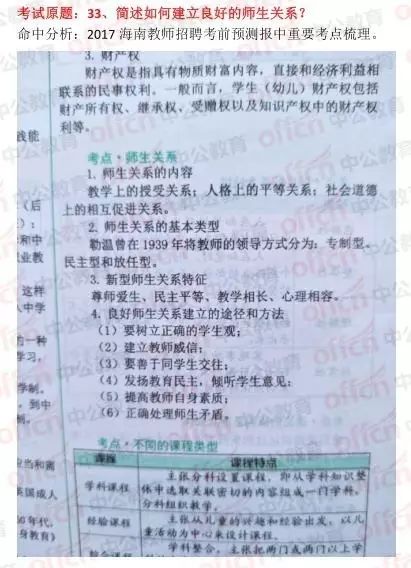 考试原题：33、简述如何建立良好的师生关系？
命中分析：2017 海南教师招聘考前预测报中重要考点梳理。
3. 财产权
财产权是指具有物质财富内容，直接和经济利益相
联系的民事权利。一般而言，学生（幼儿）财产权包括
财产所有权、继承权、受赠权以及知识产权中的财产权
利等。
考点·师生关系
1. 师生关系的内容
教学上的授受关系；人格上的平等关系；社会道德
上的相互促进关系。
2. 师生关系的基本类型
勒温曾在 1939 年将教师的领导方式分为：专制型、
民主型和放任型。
3. 新型师生关系特征
尊师爱生、民主平等、教学相长、心理相容。
4. 良好师生关系建立的途径和方法
（1）要树立正确的学生观；
（2）建立教师威信；
（3）要善于同学生交往；
（4）发扬教育民主，倾听学生意见；
（5）提高教师自身素质；
（6）正确处理师生矛盾。
考点·不同的课程类型
课程 课程特点
学科课程 主张分科设置课程，即从学科知识整
体中选取关联密切的内容组成一门学科，
分科组织教学。
经验课程 主张从儿童的兴趣和经验出发，以儿
童活动为中心来设计课程。
综合课程 学科整合，主张把两门或两门以上学
践能
（后
）；
和中
业教
这样
人中学
的一种
学习，
学制。
，到中
应当和离
英国成人
60年代，
身教育）
offcn 中公教育